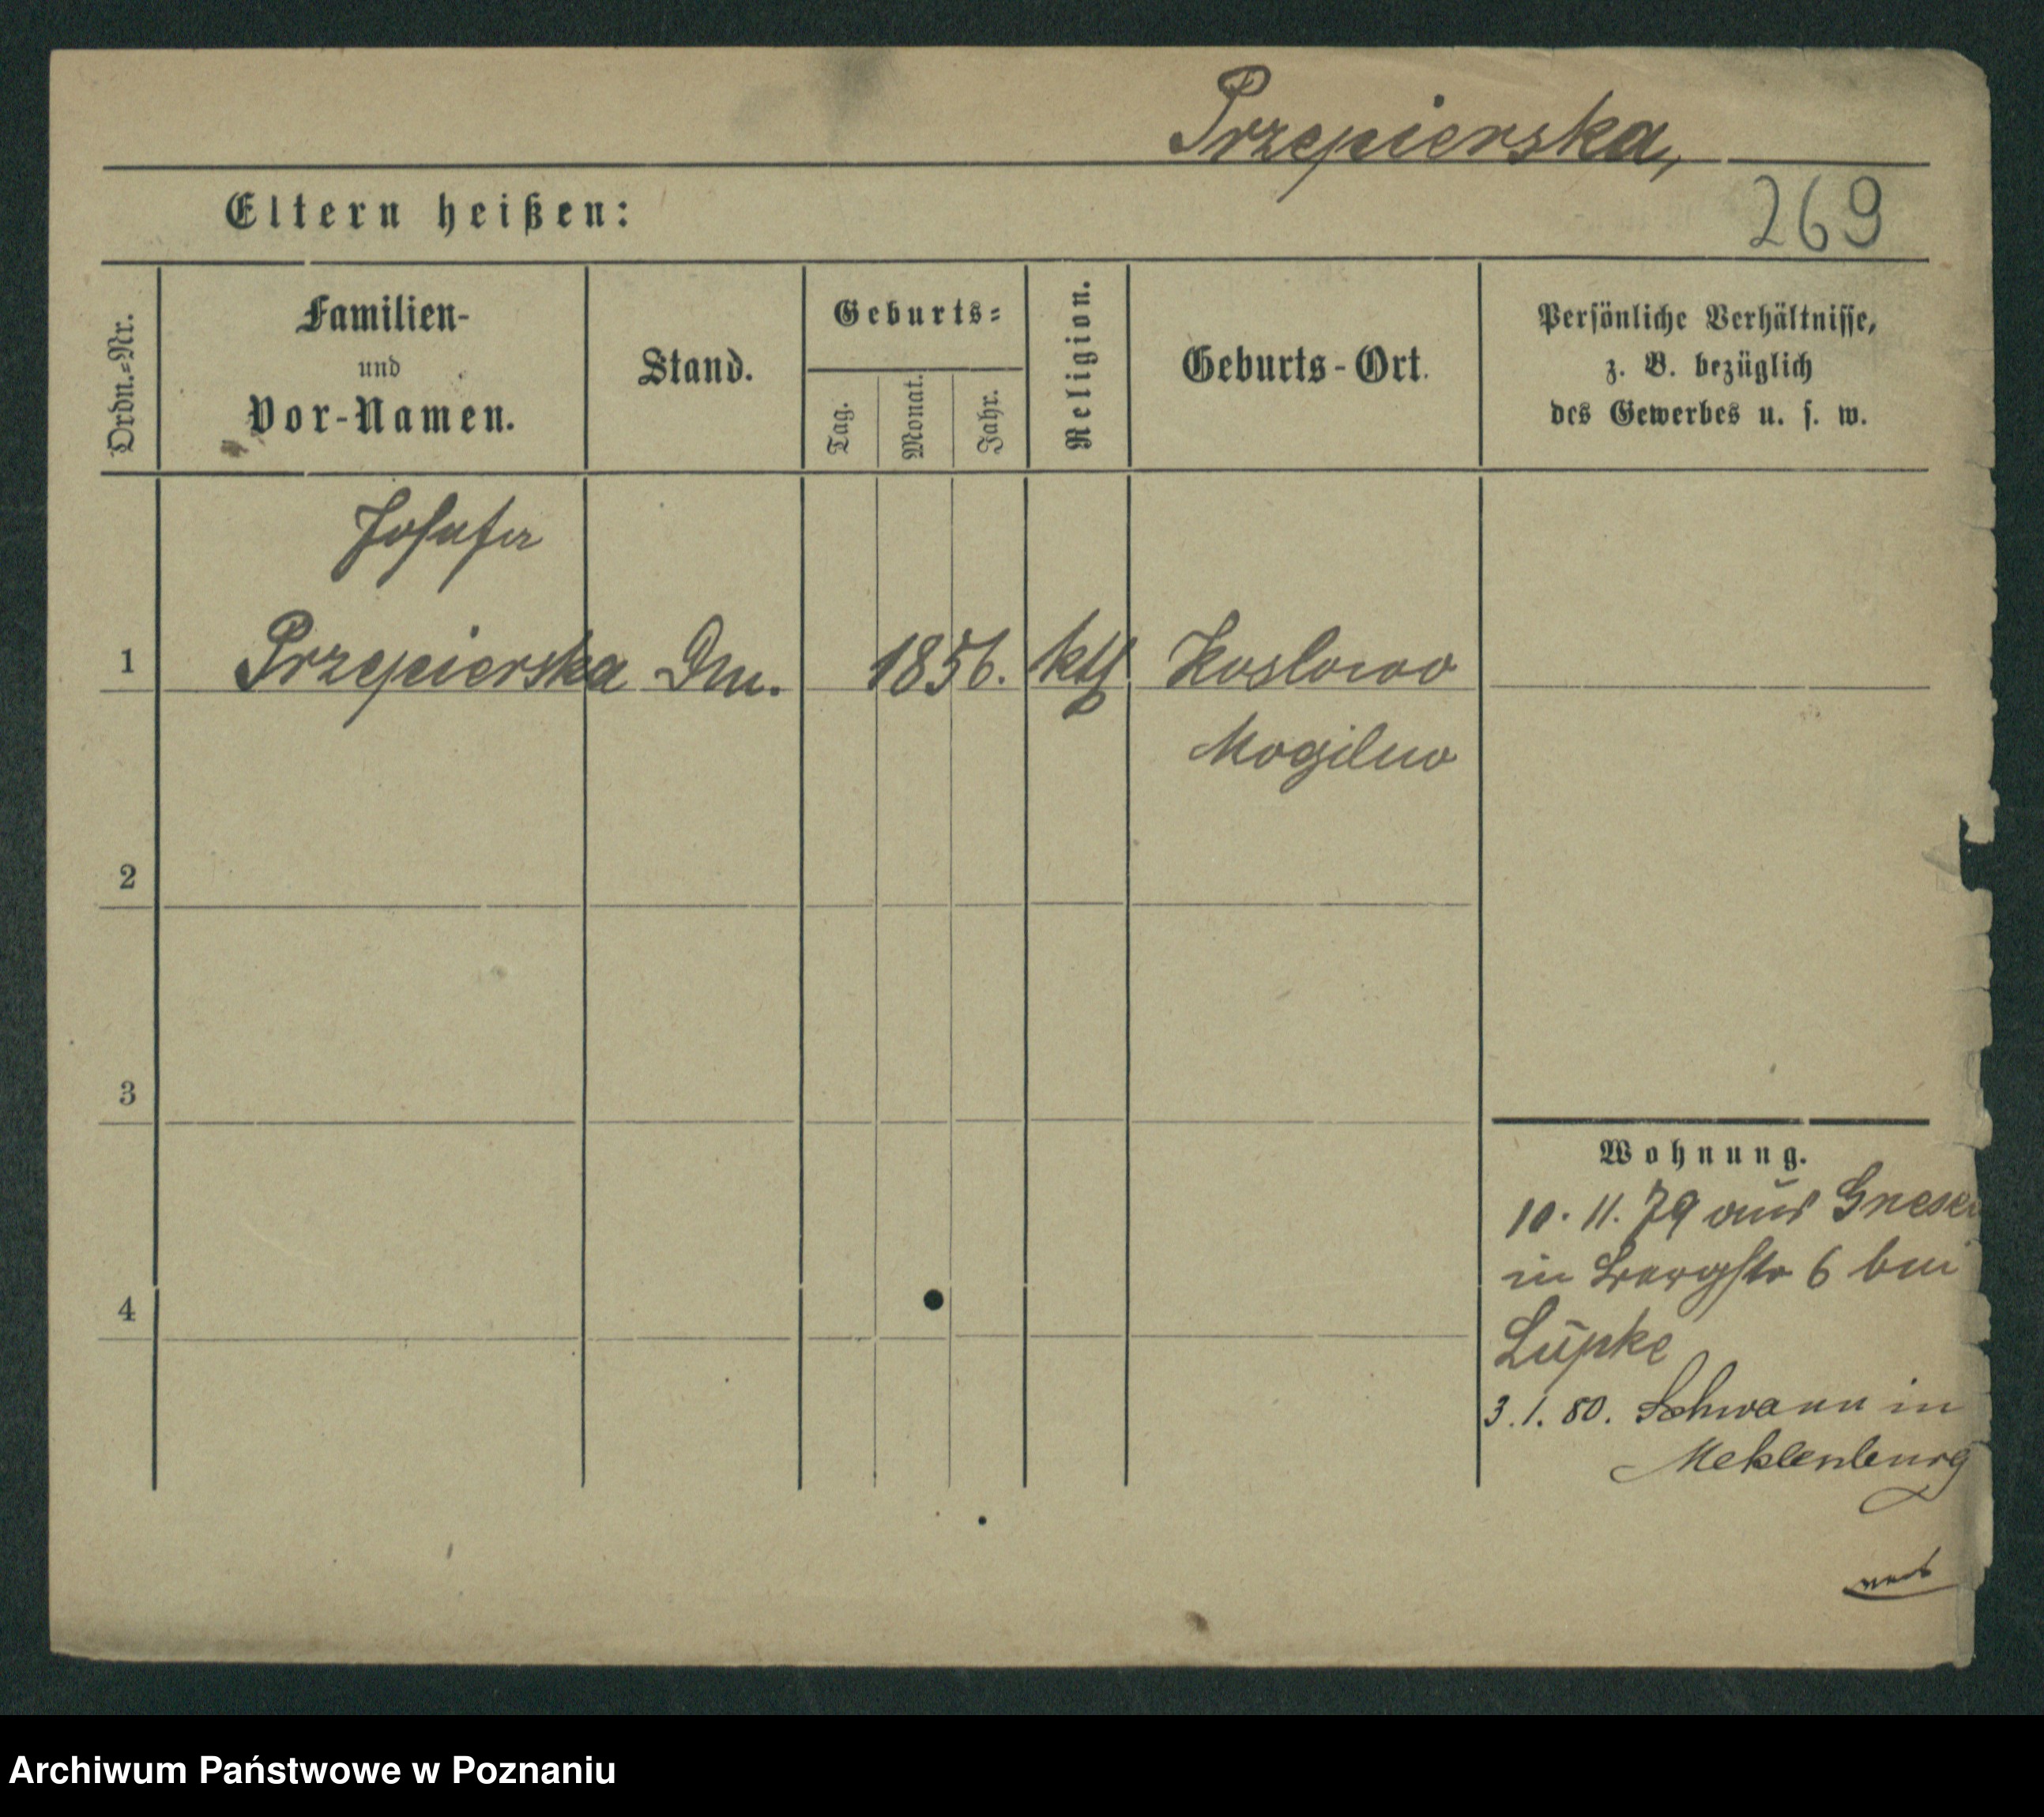 Przepierska,
Eltern heißen:
269
Ordn.=Nr.
Familien-
und
Vor-Namen.
Stand.
Geburts=
Tag.
Monat.
Jahr.
Religion.
Geburts-Ort.
Persönliche Verhältnisse,
z. B. bezüglich
des Gewerbes u. s. w.
Josefa
1 Przepierska 1856. kth Koslowo
Mogilno
2
3
4
Wohnung.
10. 11. 79 aus Gnesen
in Bergstr 6 bei
Lüpke
3. 1. 80. Schwann in
Meklenburg
Archiwum Państwowe w Poznaniu